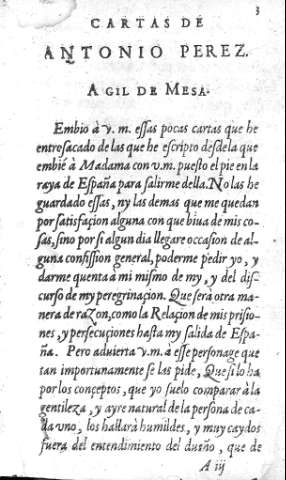 3
CARTAS DE
ANTONIO PEREZ.
A GIL DE MESA.
Embio à v. m. eſſas pocas cartas que he
entreſacado de las que he eſcripto deſde la que
embié a Madama con v.m. pueſto el pie en la
raya de Eſpaña para ſalirme della. No las he
guardado eſſas, ny las demas que me quedan
por ſatisfaçion alguna con que biua de mis co-
ſas, ſino por ſi algun dia llegare occaſion de al-
guna confiſſion general, poderme pedir yo, y
darme quenta a mi miſmo de my, y del diſ-
curſo de my peregrinaçion. Que ſerà otra ma-
nera de razon, como la Relaçion de mis priſio-
nes, y perſecuçiones haſta my ſalida de Eſpa-
ña. Pero aduierta v.m. à eſſe perſonage que
tan importunamente ſe las pide, Que ſi lo ha
por los conçeptos, que yo ſuelo comparar à la
gentileza, y ayre natural de la perſona de ca-
da vno, los hallarà humildes, y muy caydos
fuera del entendimiento del dueño, que de
A iij